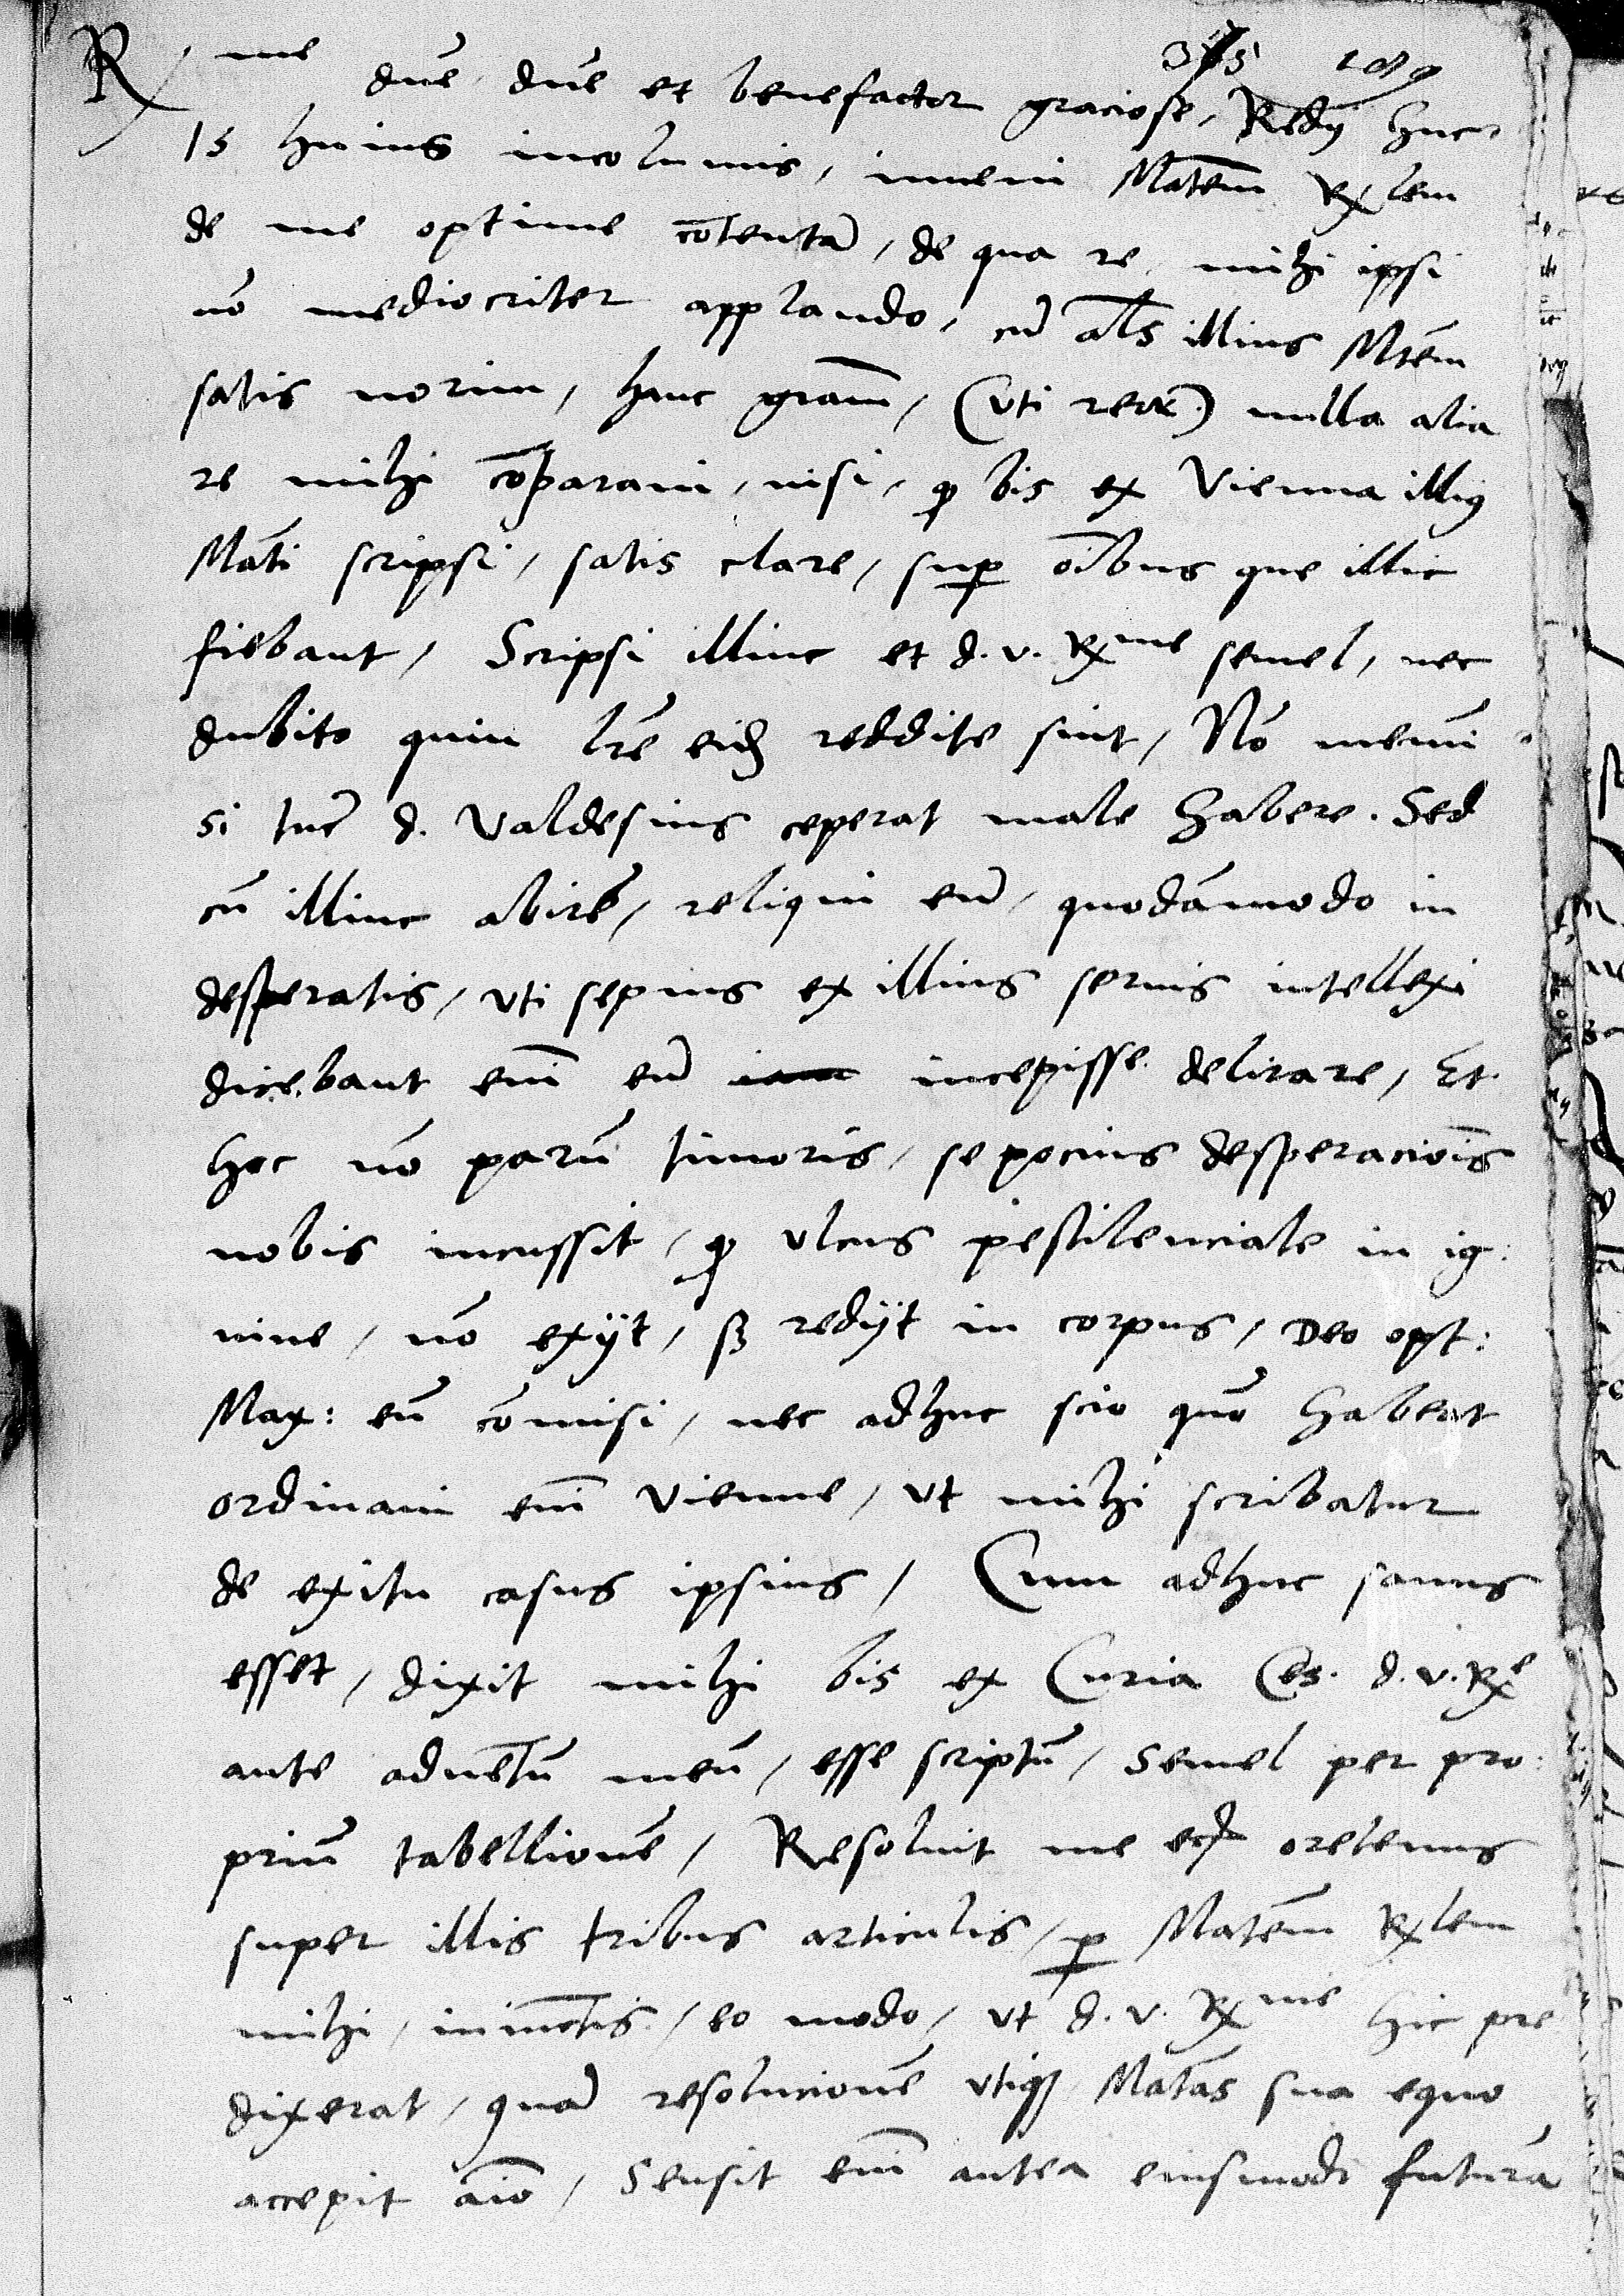 R me dne dne et benefactor graciose, Redij huc
15 huius incolumis, inveni Matem Rglem
de me optime cōtentā, de qua re, mihi ipsi
nō mediocriter applaudo, cū als illius Mtem
satis norim, hanc gram, (vti reor) nulla alia
re mihi cōparavi, nisi, ꝙ bis ex Vienna illiꝰ
Mati scripsi, satis clare, suꝑ oibus que illic
fiebant, Scripsi illinc et d. v. Rme semel, nec
dubito quin lre eidē reddite sint, Nō memi
si tūc d. Valdesius ceperat male habere. Sed
cū illinc abirē, reliqui eū, quodāmodo in
desperatis, vti sepius ex illius servis intellexi
dicebant eni eū iam incepisse delirare, Et
hoc nō parū timoris, se pocius desperaciois
nobis incussit, ꝙ vlcus pestilenciale in ig:
nine, nō exijt, sꝫ redijt in corpus, Deo opt:
Max: eū cōmisi, nec adhuc scio quō habeat
ordinavi eni Vienne, vt mihi scribatur
de exitu casus ipsius, Cum adhuc sanus
esset, dixit mihi bis ex Curia Ces. d. v. Re
ante adventū meū, esse scriptū, Semel per pro:
priū tabellionē, Resolvit me oretenus
super illis tribus articulis, ꝑ Matem Rglem
mihi, iniunctis, eo modo, vt d. v. Rme hic pre
dixerat, quā resolucionē vtiqꝫ Matas sua equo
accepit aio, Sensit eni antea eiusmodi futurā